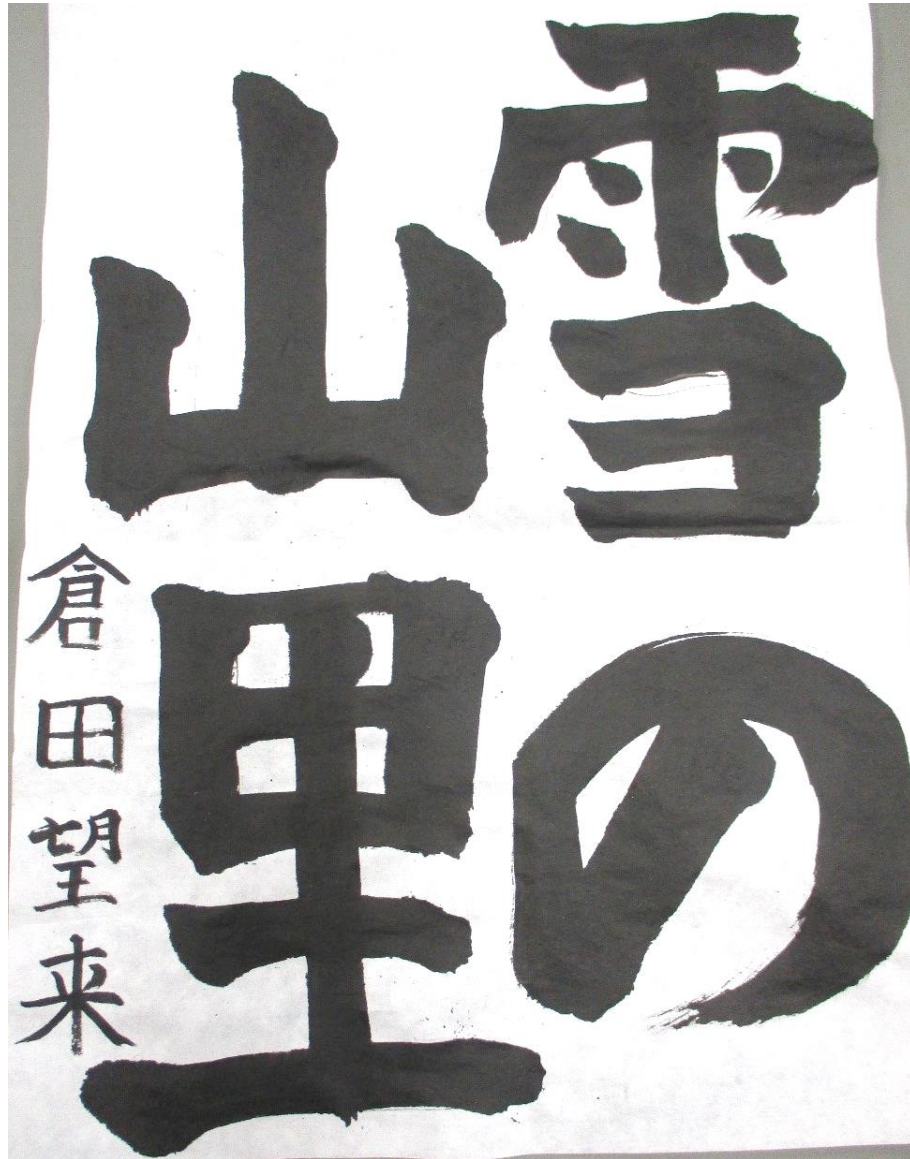 雪の
山里
倉田望来